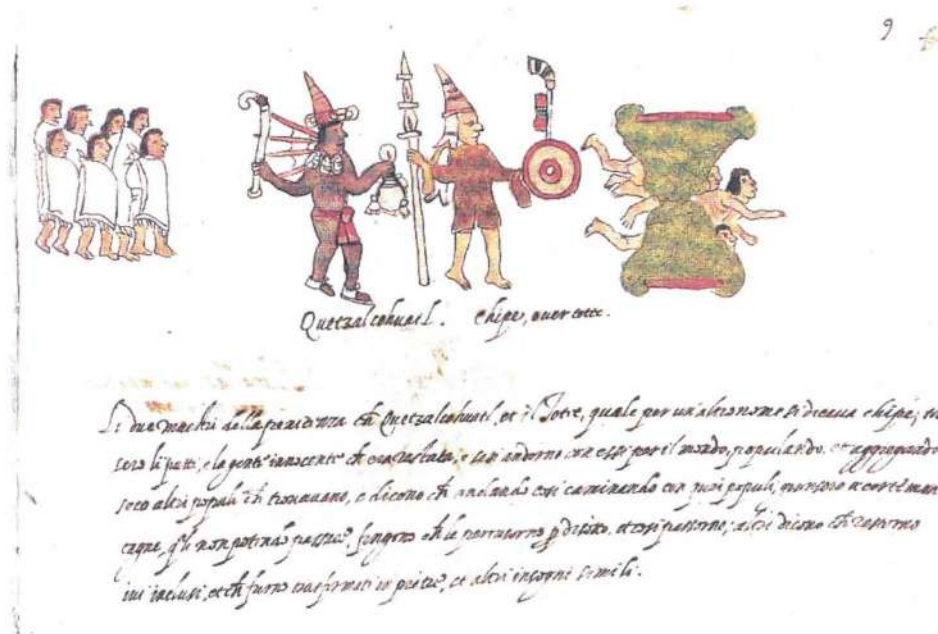 9
Quetzalcohuatl. Chipe, over Totec.
Li due maestri della penitenza ch̃ Quetzalcohuatl, et il Totec, quale per un'altro nome si diceva chipe,
la gente innocente ch̃ era restata, e andorno con essi per il mondo, populando, et aggregando
seco altri populi ch̃ trovavano, e dicono ch̃ andando cosi caminando con questi populi, a certe mon
tagne, non potendo passare, fingono ch̃ la di sotto, et cosi passorno, altri dicono ch̃ restorno
ivi inclusi, et ch̃ furno trasformati in pietre, et altri insogni simili.